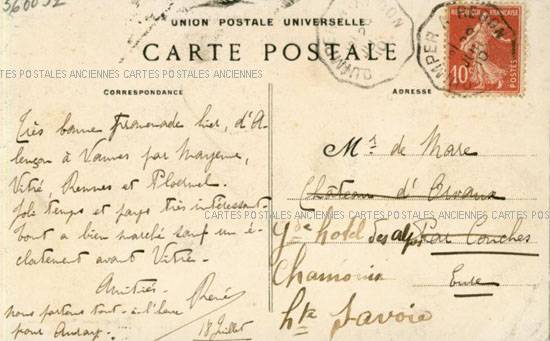 360092
UNION POSTALE UNIVERSELLE
CARTE POSTALE
CARTES POSTALES ANCIENNES CARTES POSTALES ANCIENNES
CORRESPONDANCE
Très bonne promenade hier, d'A-
lençon à Vannes par Mayenne,
Vitré, Rennes et Ploërmel.
Joli temps et pays très intéressant.
Tout a bien marché sauf un é-
clatement avant Vitré.
Amitiés.
René
nous partons tout à l'heure
pour Auray.
18 Juillet
ADRESSE
Mr de Mare
Château d'
Par Conches
Eure
Gd hotel des alpes
Chamonix
hte Savoie
CARTES POSTALES ANCIENNES CARTES POSTALES ANCIENNES CARTES POSTALES ANCIENNES CARTES POSTALES
REPUBLIQUE FRANÇAISE
10c
POSTES